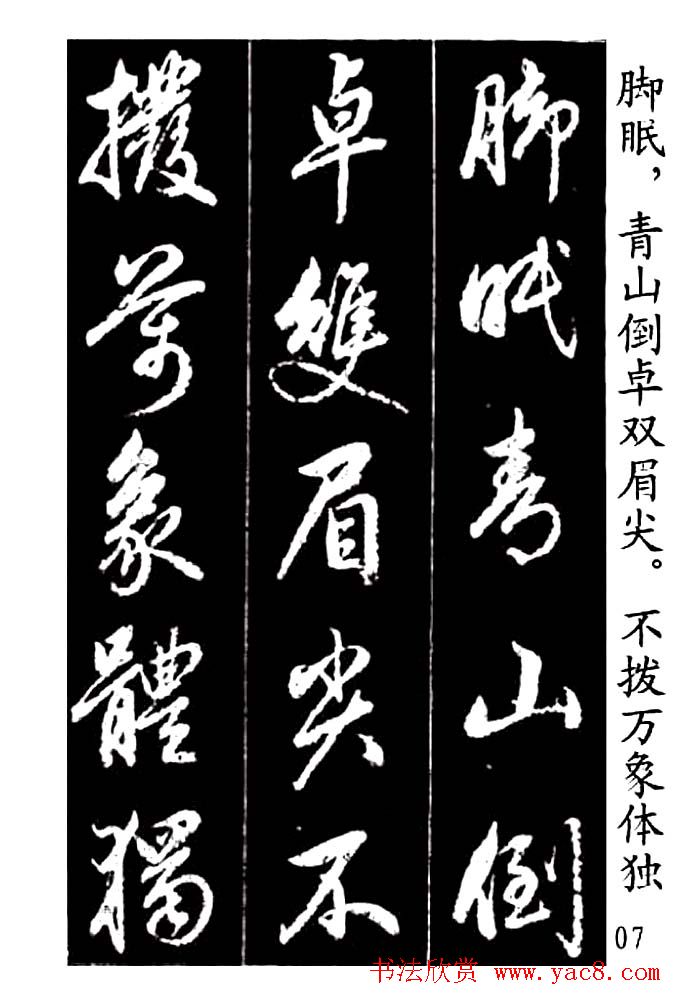 脚眠，青山倒卓双眉尖。不拨万象体独
07
脚眠青山倒
卓雙眉尖不
撥萬象體獨
书法欣赏 www.yac8.com